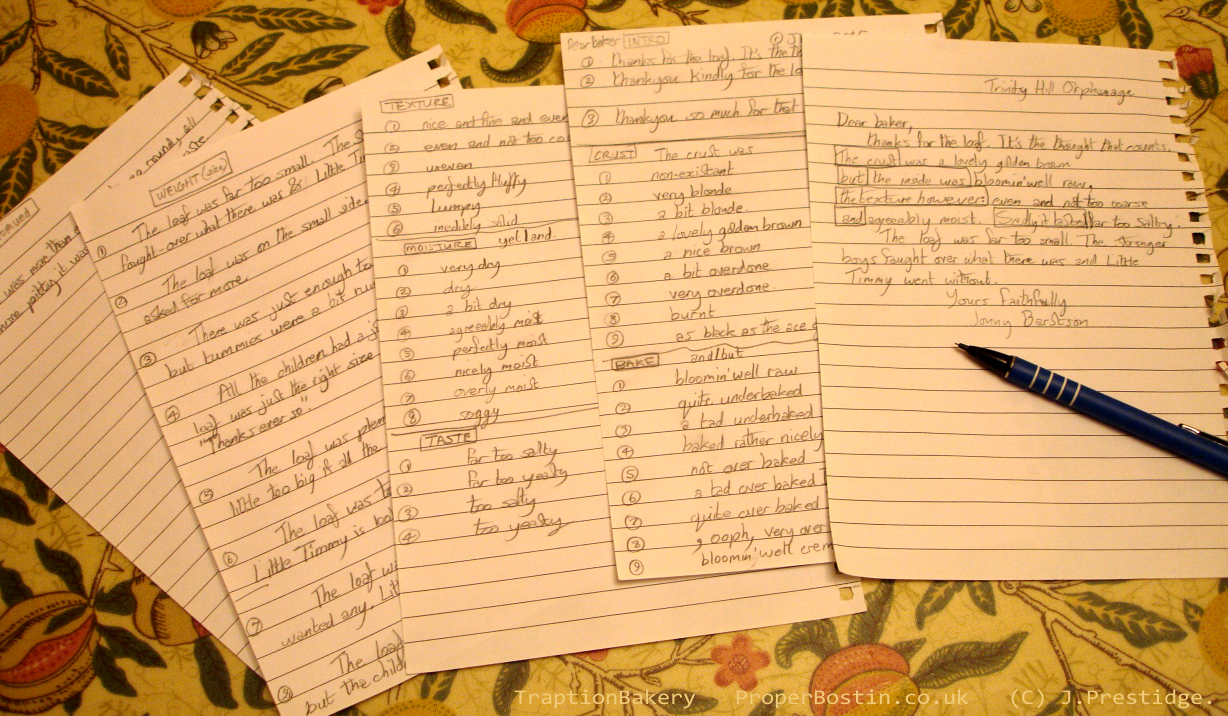 was more than
WEIGHT
① The loaf was far too small. The S
fought over what there was & Little
② The loaf was on the small side
asked for more.
③ There was just enough to
but tummies were a bit
④ All the children had a
loaf was just the right size
"Thanks ever so".
⑤ The loaf was
little too big if all the
⑥ The loaf was
Little Timmy is
⑦ The loaf
wanted any.
⑧ The loaf
but the child
TEXTURE
① nice and fine and even
② even and not too co
③ uneven
④ perfectly fluffy
⑤ lumpy
⑥ inedibly solid
MOISTURE yet/and.
① very dry
② dry
③ a bit dry
④ agreeably moist
⑤ perfectly moist
⑥ nicely moist
⑦ overly moist
⑧ soggy
TASTE
① far too salty
② far too yeasty
③ too salty
④ too yeasty
Dear baker INTRO
① Thanks for the loaf. It's the
② Thankyou kindly for the lo
③ Thankyou so much for that
CRUST The crust was
① non-existant
② very blonde
③ a bit blonde
④ a lovely golden brown
⑤ a nice brown
⑥ a bit overdone
⑦ very overdone
⑧ burnt
⑨ as black as the ace
BAKE and/but
① bloomin' well raw
② quite underbaked
③ a tad underbaked
④ baked rather nicely
⑤ not over baked
⑥ a tad over baked
⑦ quite over baked
⑧ , ooph, very over
⑨ bloomin' well crem
Trinity Hill Orphanage
Dear baker,
thanks for the loaf. It's the thought that counts.
The crust was a lovely golden brown
but the inside was bloomin' well raw,
the texture however: even and not too coarse
and agreeably moist. Sadly it tasted far too salty.
The loaf was far too small. The stronger
boys fought over what there was and Little
Timmy went without.
Yours Faithfully
Jonny Barstson
TraptionBakery ProperBostin.co.uk (C) J.Prestidge.